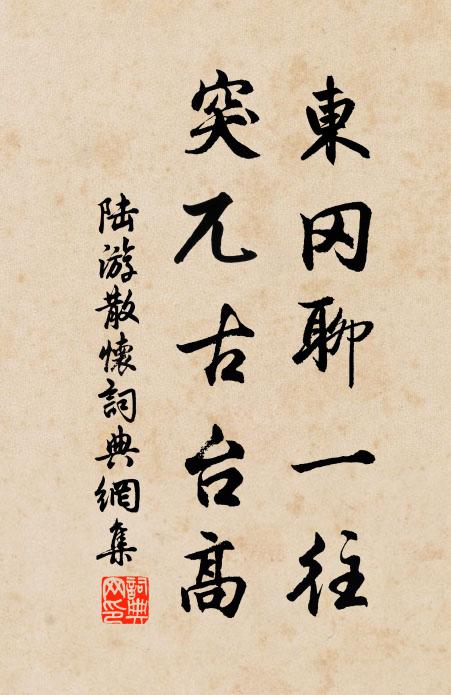 東冈聊一往
突兀古台高
陆游散懷詞典網集
詞典網印